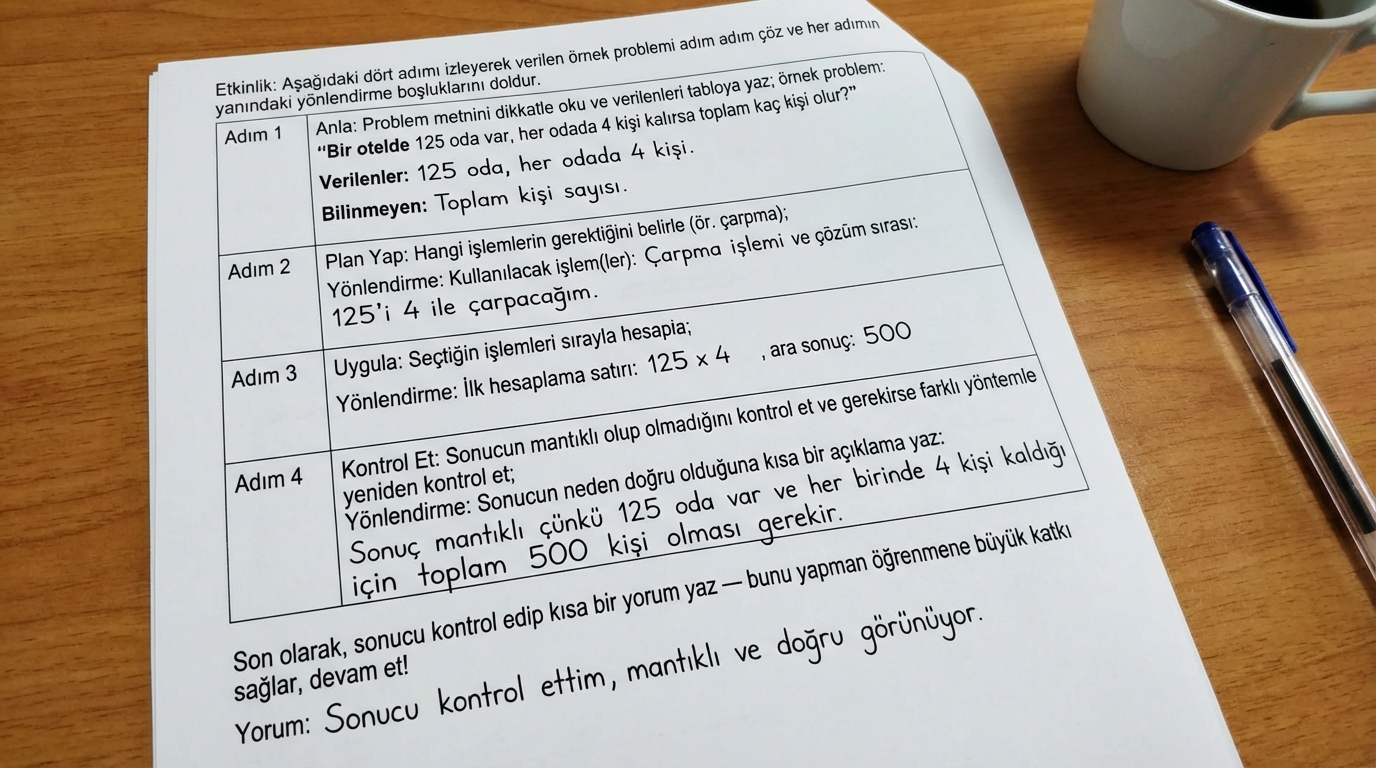 Etkinlik: Aşağıdaki dört adımı izleyerek verilen örnek problemi adım adım çöz ve her adımın
yanındaki yönlendirme boşluklarını doldur.
Adım 1
Anla: Problem metnini dikkatle oku ve verilenleri tabloya yaz; örnek problem:
“Bir otelde 125 oda var, her odada 4 kişi kalırsa toplam kaç kişi olur?”
Verilenler: 125 oda, her odada 4 kişi.
Bilinmeyen: Toplam kişi sayısı.
Adım 2
Plan Yap: Hangi işlemlerin gerektiğini belirle (ör. çarpma);
Yönlendirme: Kullanılacak işlem(ler): Çarpma işlemi ve çözüm sırası:
125'i 4 ile çarpacağım.
Adım 3
Uygula: Seçtiğin işlemleri sırayla hesapia;
Yönlendirme: İlk hesaplama satırı: 125 x 4 , ara sonuç: 500
Adım 4
Kontrol Et: Sonucun mantıklı olup olmadığını kontrol et ve gerekirse farklı yöntemle
yeniden kontrol et;
Yönlendirme: Sonucun neden doğru olduğuna kısa bir açıklama yaz:
Sonuç mantıklı çünkü 125 oda var ve her birinde 4 kişi kaldığı
için toplam 500 kişi olması gerekir.
Son olarak, sonucu kontrol edip kısa bir yorum yaz — bunu yapman öğrenmene büyük katkı
sağlar, devam et!
Yorum: Sonucu kontrol ettim, mantıklı ve doğru görünüyor.